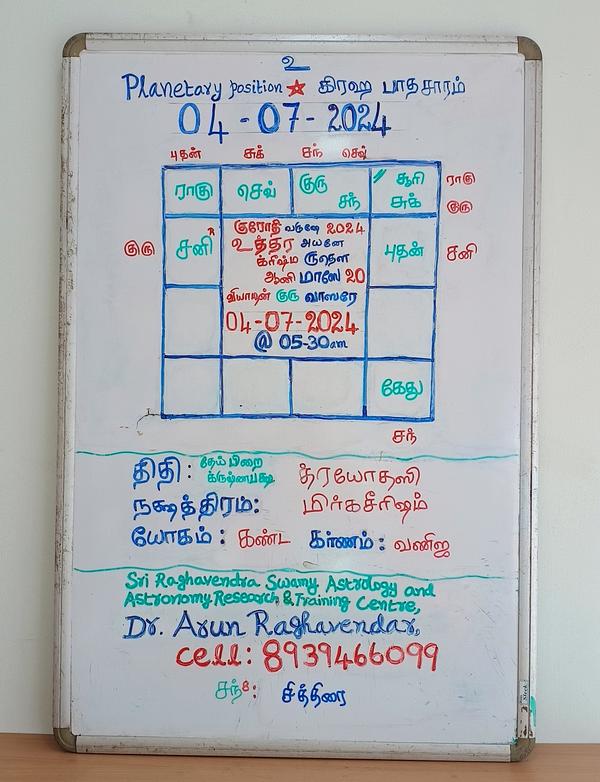 உ
Planetary position ★ கிரஹ பாதசாரம்
04-07-2024
புதன் சுக் சந் செவ்
ராகு செவ் குரு சந் சூரி சுக் ராகு குரு
குரு சனி R புதன் சனி
குரோதி வருஷே 2024
உத்தர அயனே
க்ரிஷ்ம ருதௌ
ஆனி மாஸே 20
தியாடின் குரு வாஸரே
04-07-2024
@ 05-30am
கேது
சந்
திதி: தேய்பிறை க்ருஷ்ணபக்ஷ த்ரயோதஸி
நக்ஷத்திரம்: மிர்கசீரிஷம்
யோகம்: கண்ட கர்ணம்: வணிஜ
Sri Raghavendra Swamy Astrology and
Astronomy Research & Training Centre,
Dr. Arun Raghavendar,
cell: 8939466099
சந்8: சித்திரை